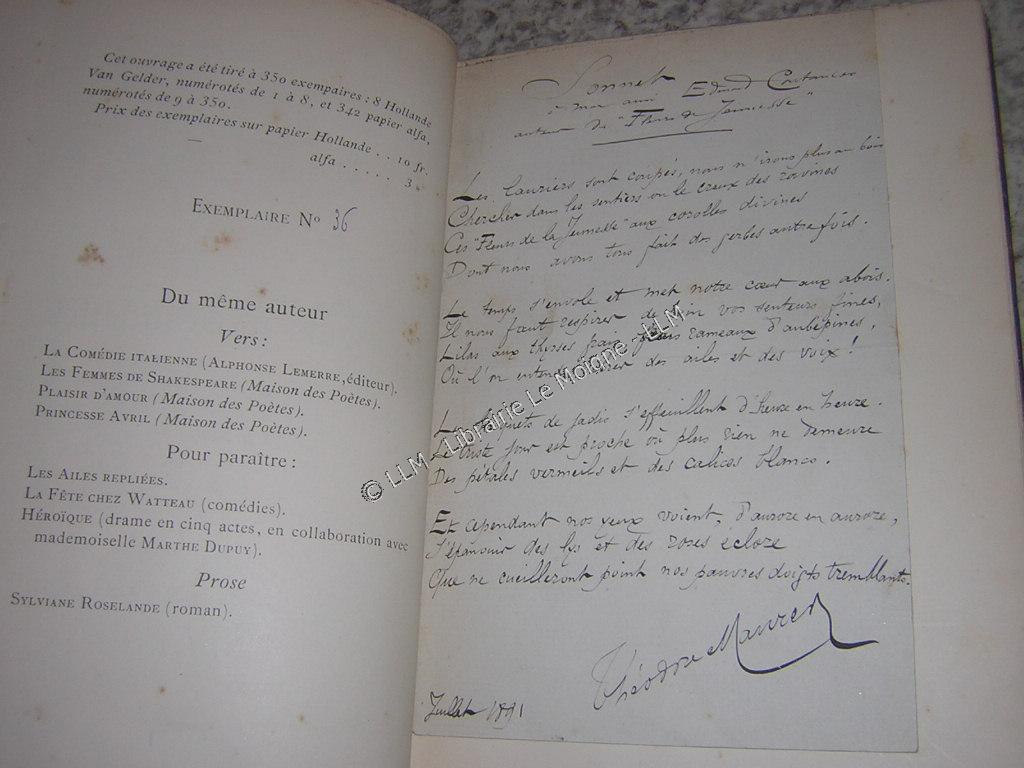 Cet ouvrage a été tiré à 350 exempaires : 8 Hollande
Van Gelder, numérotés de 1 à 8, et 342 papier alfa,
numérotés de 9 à 350.
Prix des exemplaires sur papier Hollande . . 10 fr.
alfa . . . . . 3 »
EXEMPLAIRE Nº 36
Du même auteur
Vers :
LA COMÉDIE ITALIENNE (ALPHONSE LEMERRE, éditeur).
LES FEMMES DE SHAKESPEARE (Maison des Poètes).
PLAISIR D'AMOUR (Maison des Poètes).
PRINCESSE AVRIL (Maison des Poètes).
Pour paraître :
LES AILES REPLIÉES.
LA FÊTE CHEZ WATTEAU (comédies).
HÉROÏQUE (drame en cinq actes, en collaboration avec
mademoiselle MARTHE DUPUY).
Prose
SYLVIANE ROSELANDE (roman).
Sonnet
à mon ami Edmond
auteur de "Fleurs de Jeunesse"
Les lauriers sont coupés, nous n'irons plus au bois
Chercher dans les sentiers ou le creux des ravines
Ces "Fleurs de la Jeunesse" aux corolles divines
Dont nous avons tous fait des gerbes autrefois.
Le temps s'envole et met notre cœur aux abois.
Il nous faut respirer de loin vos senteurs fines,
Lilas aux thyrses frais, rameaux d'aubépines,
Où l'on entend des ailes et des voix !
Les bouquets de jadis s'effeuillent d'heure en heure.
Le triste jour est proche où plus rien ne demeure
Des pétales vermeils et des calices blancs.
Et cependant nos yeux voient, d'aurore en aurore,
S'épanouir des lys et des roses eclore
Que ne cueilleront point nos pauvres doigts tremblants.
Théodore Maurer
Juillet 1891
© LLM - Librairie Le Moigne - LLM